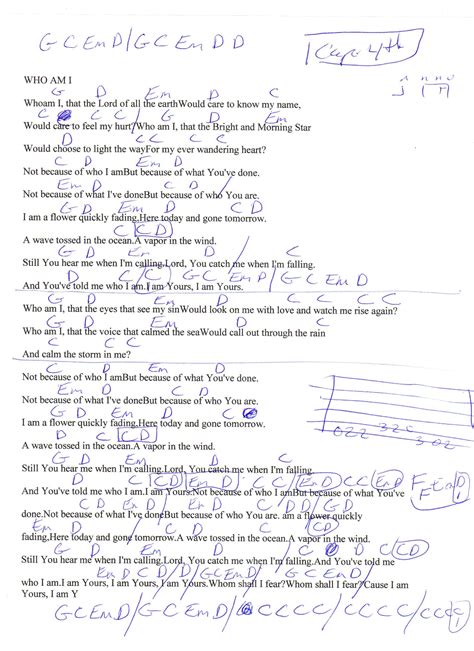 G C Em D / G C Em D D
Capo 4th
WHO AM I
G D Em D C
Whoam I, that the Lord of all the earthWould care to know my name,
C C C G D Em
Would care to feel my hurt/Who am I, that the Bright and Morning Star
D C C C C
Would choose to light the wayFor my ever wandering heart?
C D Em D
Not because of who I amBut because of what You've done.
Em D C D
Not because of what I've doneBut because of who You are.
G D Em D C D
I am a flower quickly fading.Here today and gone tomorrow.
C C D
A wave tossed in the ocean.A vapor in the wind.
G D Em D C
Still You hear me when I'm calling.Lord, You catch me when I'm falling.
D C / C / G C Em D / G C Em D
And You've told me who I am.I am Yours, I am Yours.
G D Em D C C C
Who am I, that the eyes that see my sinWould look on me with love and watch me rise again?
G D Em D C C
Who am I, that the voice that calmed the seaWould call out through the rain
C C
And calm the storm in me?
C D Em D
Not because of who I amBut because of what You've done.
Em D C D
Not because of what I've doneBut because of who You are.
G D Em D C
I am a flower quickly fading.Here today and gone tomorrow.
D C C D
A wave tossed in the ocean.A vapor in the wind.
G D Em D
Still You hear me when I'm calling.Lord, You catch me when I'm falling.
And You've told me who I am.I am Yours.Not because of who I amBut because of what You've
done.Not because of what I've doneBut because of who You are. am a flower quickly
fading.Here today and gone tomorrow.A wave tossed in the ocean.A vapor in the wind.
Still You hear me when I'm calling.Lord, You catch me when I'm falling.And You've told me
who I am.I am Yours, I am Yours, I am Yours.Whom shall I fear?Whom shall I fear?Cause I am
Yours, I am Y
G C Em D / G C Em D / C C C C / C C C C / C C C